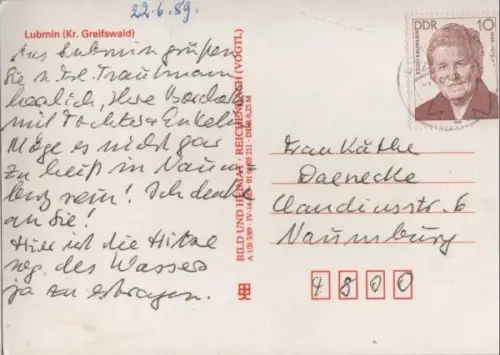 22.6.89.
Lubmin (Kr. Greifswald)
Aus Lubmin grüßen
Sie u. Frl. Trautmann
herzlich, Ihre
mit Tochter + Enkeln
Möge es nicht gar
zu heiß in Naum-
burg sein! Ich denke
an Sie!
Hier ist die Hitze
weg. des Wassers
ja zu ertragen.
BILD UND HEIMAT · REICHENBACH (VOGTL)
A 1/B 3389 · IV-14-
DDR 0,25 M
DDR 10
Frau Käthe
Daenecke
Claudiusstr. 6
Naumburg
4800